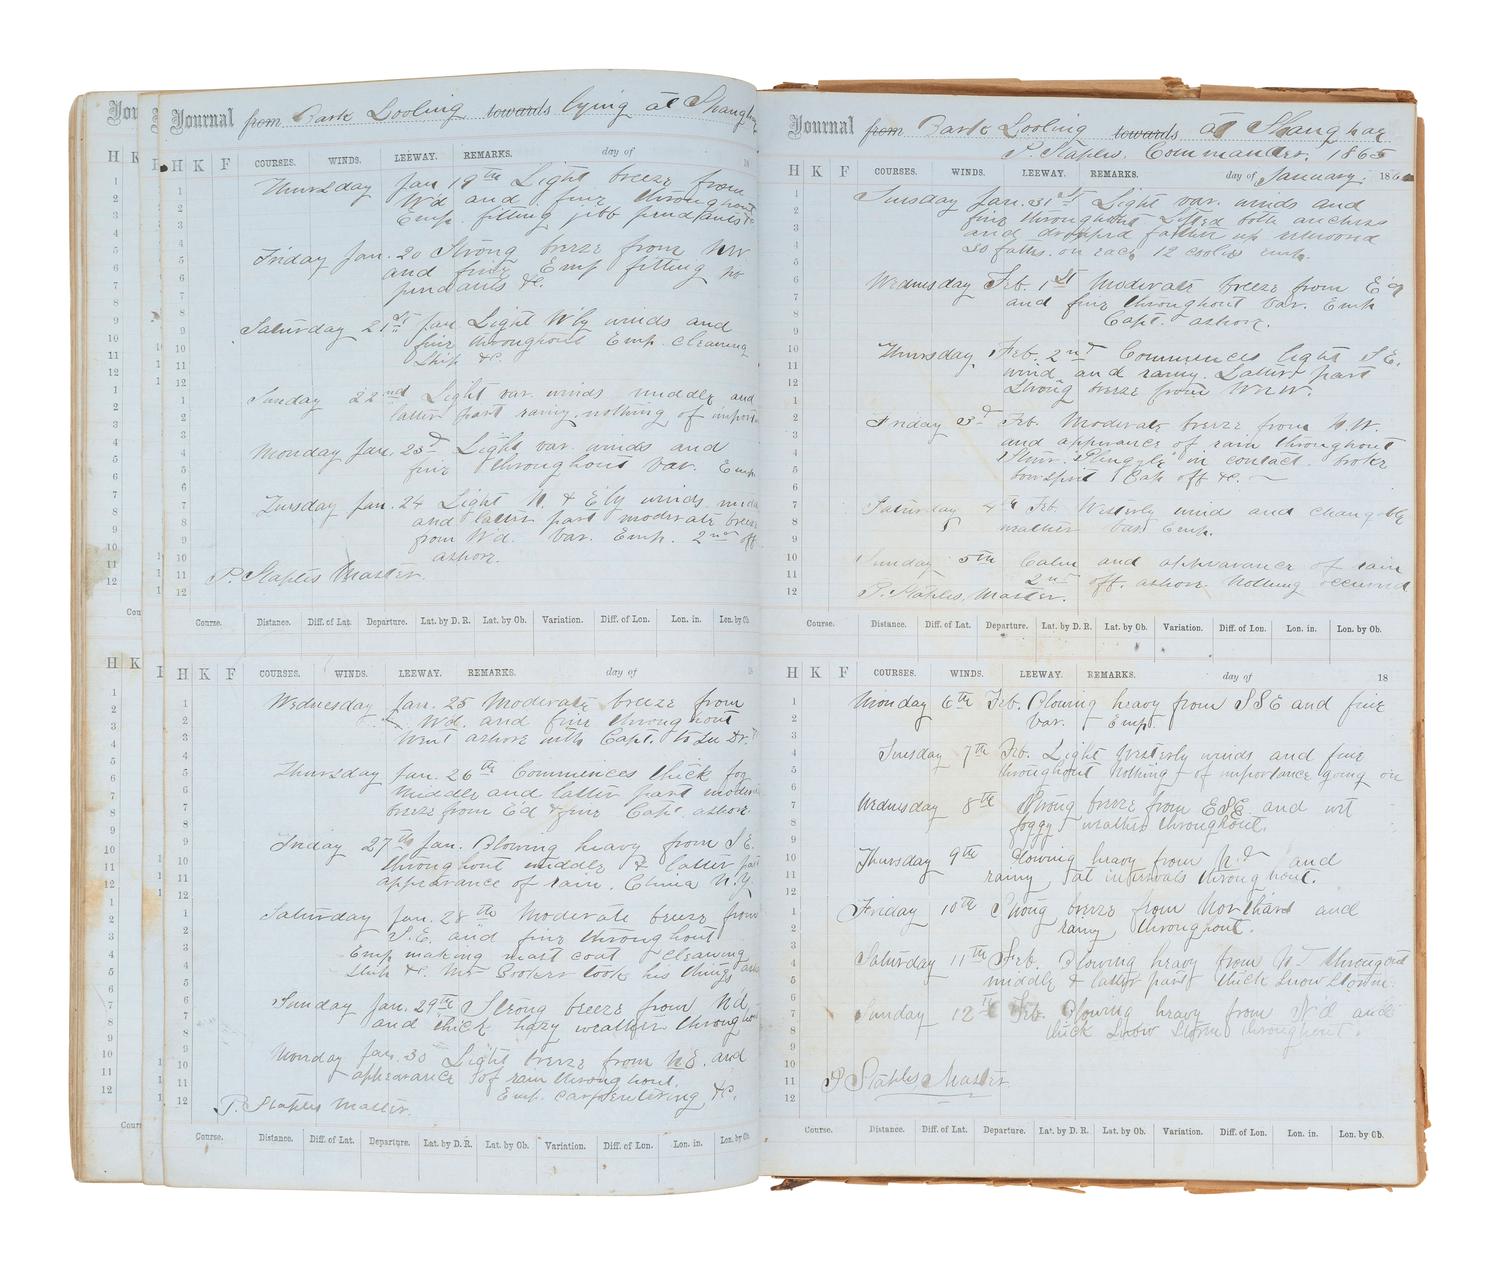 Journal from Bark Looling towards lying at Shanghae
H K F COURSES. WINDS. LEEWAY. REMARKS. day of 18
Thursday Jan 19th Light breeze from
Wd and fine throughout
Emp. fitting jibb pendants &c
Friday Jan. 20 Strong breeze from NW
and fine Emp fitting
pendants &c.
Saturday 21st Jan Light W'ly winds and
fine throughout Emp. cleaning
Ship &c.
Sunday 22nd Light var. winds middle and
latter part rainy. nothing of import
Monday Jan. 23d Light var. winds and
fine throughout Var. Emp.
Tuesday Jan. 24 Light N. & E'ly winds mid
and latter part moderate breeze
from Wd. Var. Emp. 2nd off
ashore.
P. Staples Master.
Course. Distance. Diff. of Lat. Departure. Lat. by D. R. Lat. by Ob. Variation. Diff. of Lon. Lon. in. Lon. by Ob.
H K F COURSES. WINDS. LEEWAY. REMARKS. day of 18
Wednesday Jan. 25 Moderate breeze from
Wd. and fine throughout
Went ashore with Capt. to see Dr.
Thursday Jan. 26th Commences thick fog
Middle and latter part moderate
breeze from Ed & fine Capt. ashore
Friday 27th Jan. Blowing heavy from S.E.
throughout middle & latter part
appearance of rain. China N.Y.
Saturday Jan. 28th Moderate breeze from
S.E. and fine throughout
Emp making mast coat & cleaning
Ship &c. Mr Bookers took his things ash
Sunday Jan. 29th Strong breeze from Nd.
and thick hazy weather throughout
Monday Jan. 30 Light breeze from NE. and
appearance of rain throughout.
Emp. carpentering &c.
P. Staples Master.
Course. Distance. Diff. of Lat. Departure. Lat. by D. R. Lat. by Ob. Variation. Diff. of Lon. Lon. in. Lon. by Ob.
Journal from Bark Looling towards at Shanghae
P. Staples. Commander. 1865
H K F COURSES. WINDS. LEEWAY. REMARKS. day of January. 186
Tuesday Jan. 31st Light var. winds and
fine throughout Lifted both anchors
and dropped farther up
30 faths. on each 12 coolies emp.
Wednesday Feb. 1st Moderate breeze from E'ly
and fine throughout Var. Emp
Capt. ashore.
Thursday, Feb. 2nd Commences light S.E.
wind and rainy. Latter part
Strong breeze from WNW.
Friday 3d Feb. Moderate breeze from N.W.
and apperance of rain throughout
in contact. broke
bowsprit Cap off &c.
Saturday 4th Feb. Westerly wind and changeable
weather Var. Emp.
Sunday 5th Calm and appearance of rain
2nd off. ashore. Nothing occurred
P. Staples, Master.
Course. Distance. Diff. of Lat. Departure. Lat. by D. R. Lat. by Ob. Variation. Diff. of Lon. Lon. in. Lon. by Ob.
H K F COURSES. WINDS. LEEWAY. REMARKS. day of 18
Monday 6th Feb. Blowing heavy from SSE and fine
Var. Emp.
Tuesday 7th Feb. Light Westerly winds and fine
throughout Nothing of importance going on
Wednesday 8th Strong breeze from ESE and wet
foggy weather throughout.
Thursday 9th Blowing heavy from N.d and
rainy at intervals throughout.
Friday 10th Strong breeze from Northard and
rainy throughout.
Saturday 11th Feb. Blowing heavy from throughout
middle & latter part thick snow storm.
Sunday 12th Feb. Blowing heavy from N'd and
thick Snow Storm throughout.
P Staples Master
Course. Distance. Diff. of Lat. Departure. Lat. by D. R. Lat. by Ob. Variation. Diff. of Lon. Lon. in. Lon. by Ob.